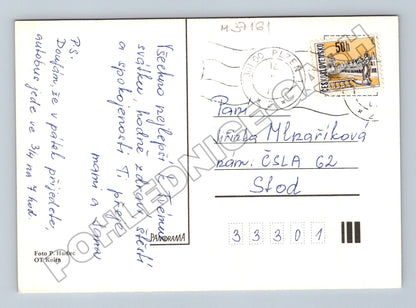 M 37161
Všechno nejlepší k Tvému
svátku, hodně zdraví, štěstí
a spokojenosti Ti přeje
mami a
P.S.
Doufám, že v pátek přijedete,
autobus jede ve 3/4 na 7 hod.
Foto P. Hudec
PANORAMA
PLZEŇ
50h
ČESKOSLOVENSKO
Paní
Jiřinka Mlnaříková
nám. ČSLA 62
Stod
33301
POHLEDNICE